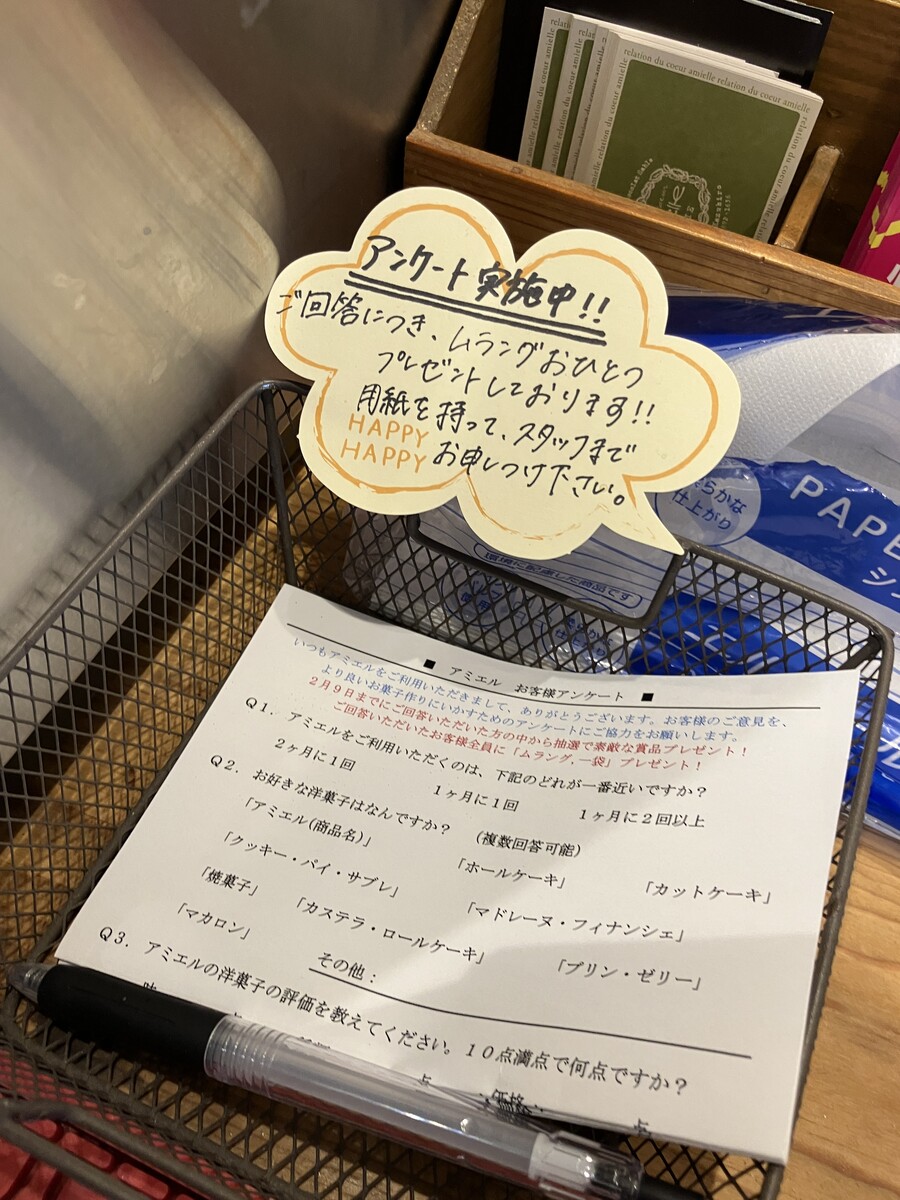 relation du coeur amielle
アンケート実施中!!
ご回答につき、ムラングおひとつ
プレゼントしております!!
用紙を持って、スタッフまで
お申しつけ下さい。
HAPPY
HAPPY
らかな
仕上がり
PAPE
環境に配慮した商品です
■ アミエル お客様アンケート ■
いつもアミエルをご利用いただきまして、ありがとうございます。お客様のご意見を、
より良いお菓子作りにいかすためのアンケートにご協力をお願いします。
2月9日までにご回答いただいた方の中から抽選で素敵な賞品プレゼント!
ご回答いただいたお客様全員に「ムラング,一袋」プレゼント!
Q1. アミエルをご利用いただくのは、下記のどれが一番近いですか?
2ヶ月に1回 1ヶ月に1回 1ヶ月に2回以上
Q2. お好きな洋菓子はなんですか? (複数回答可能)
「アミエル(商品名)」 「ホールケーキ」 「カットケーキ」
「クッキー・パイ・サブレ」 「マドレーヌ・フィナンシェ」
「焼菓子」 「カステラ・ロールケーキ」 「プリン・ゼリー」
「マカロン」 その他:
Q3. アミエルの洋菓子の評価を教えてください。10点満点で何点ですか?
点 価格: 点